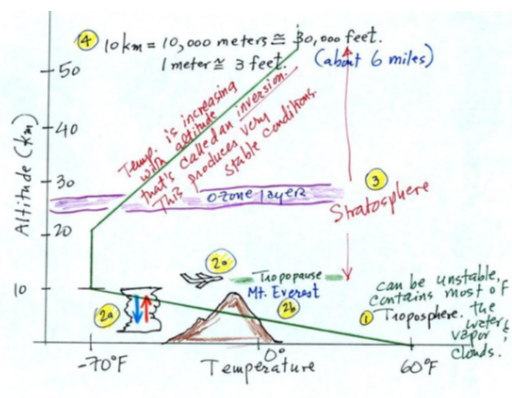 4 10 km = 10,000 meters ≅ 30,000 feet.
1 meter ≅ 3 feet. (about 6 miles)
50
40
30
20
10
Altitude (Km)
Temp. is increasing
with altitude
that's called an inversion.
This produces very
stable conditions.
ozone layer
3
Stratosphere
2a
Tropopause
Mt. Everest
2a
2b
can be unstable,
contains most of
1 Troposphere. the
water
vapor &
clouds.
-70°F
0°
60°F
Temperature